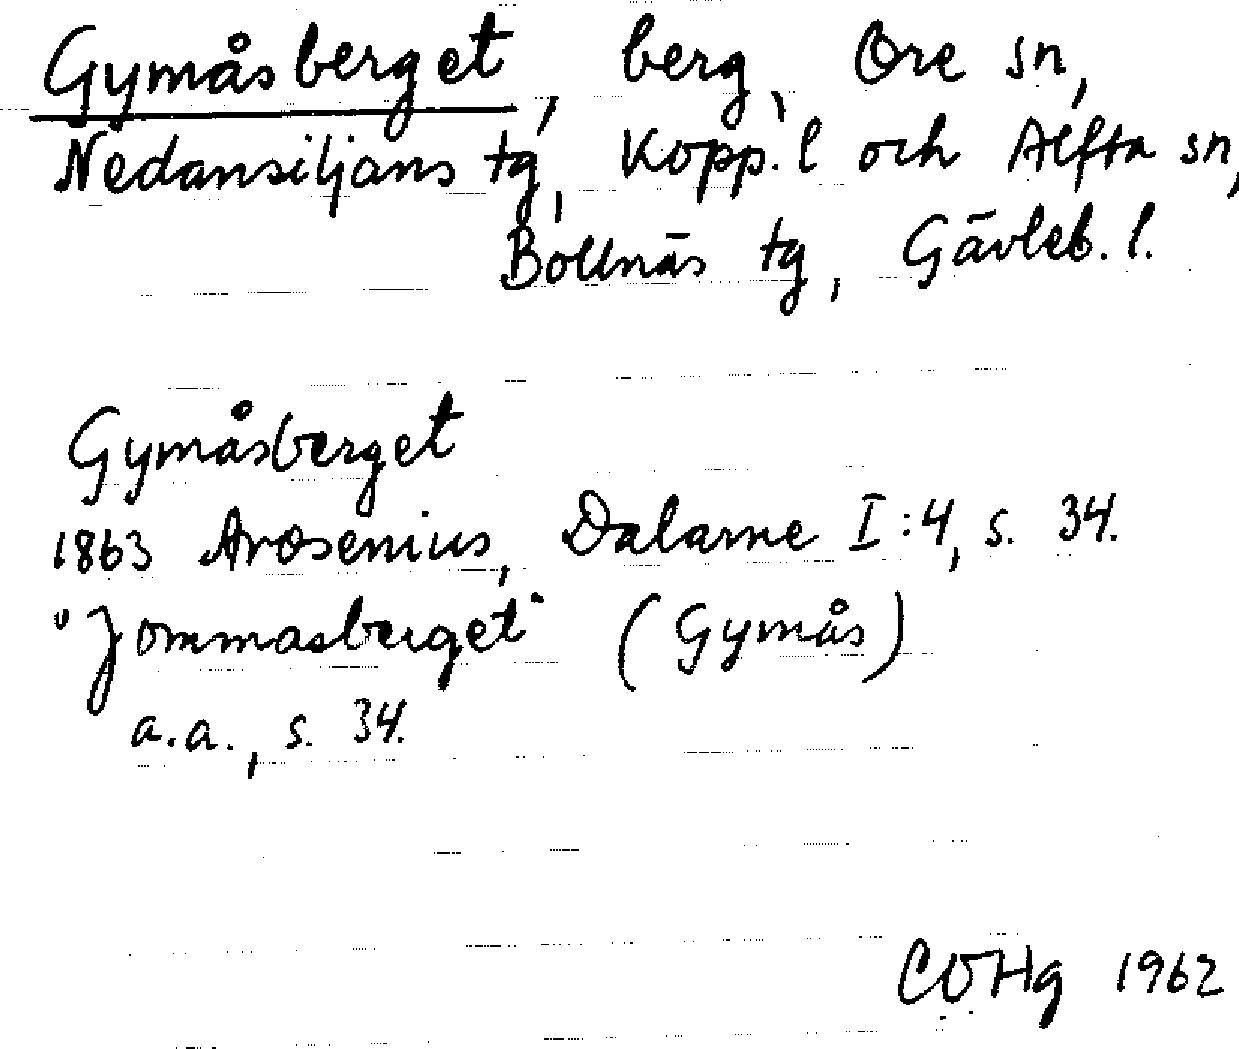 Gymåsberget, berg, Ore sn,
Nedansiljans tg, Kopp. l och Alfta sn,
Bollnäs tg, Gävleb. l.
Gymåsberget
1863 Arosenius, Dalarne I:4, s. 34.
"Jommasberget" (Gymås)
a.a., s. 34.
COHg 1962